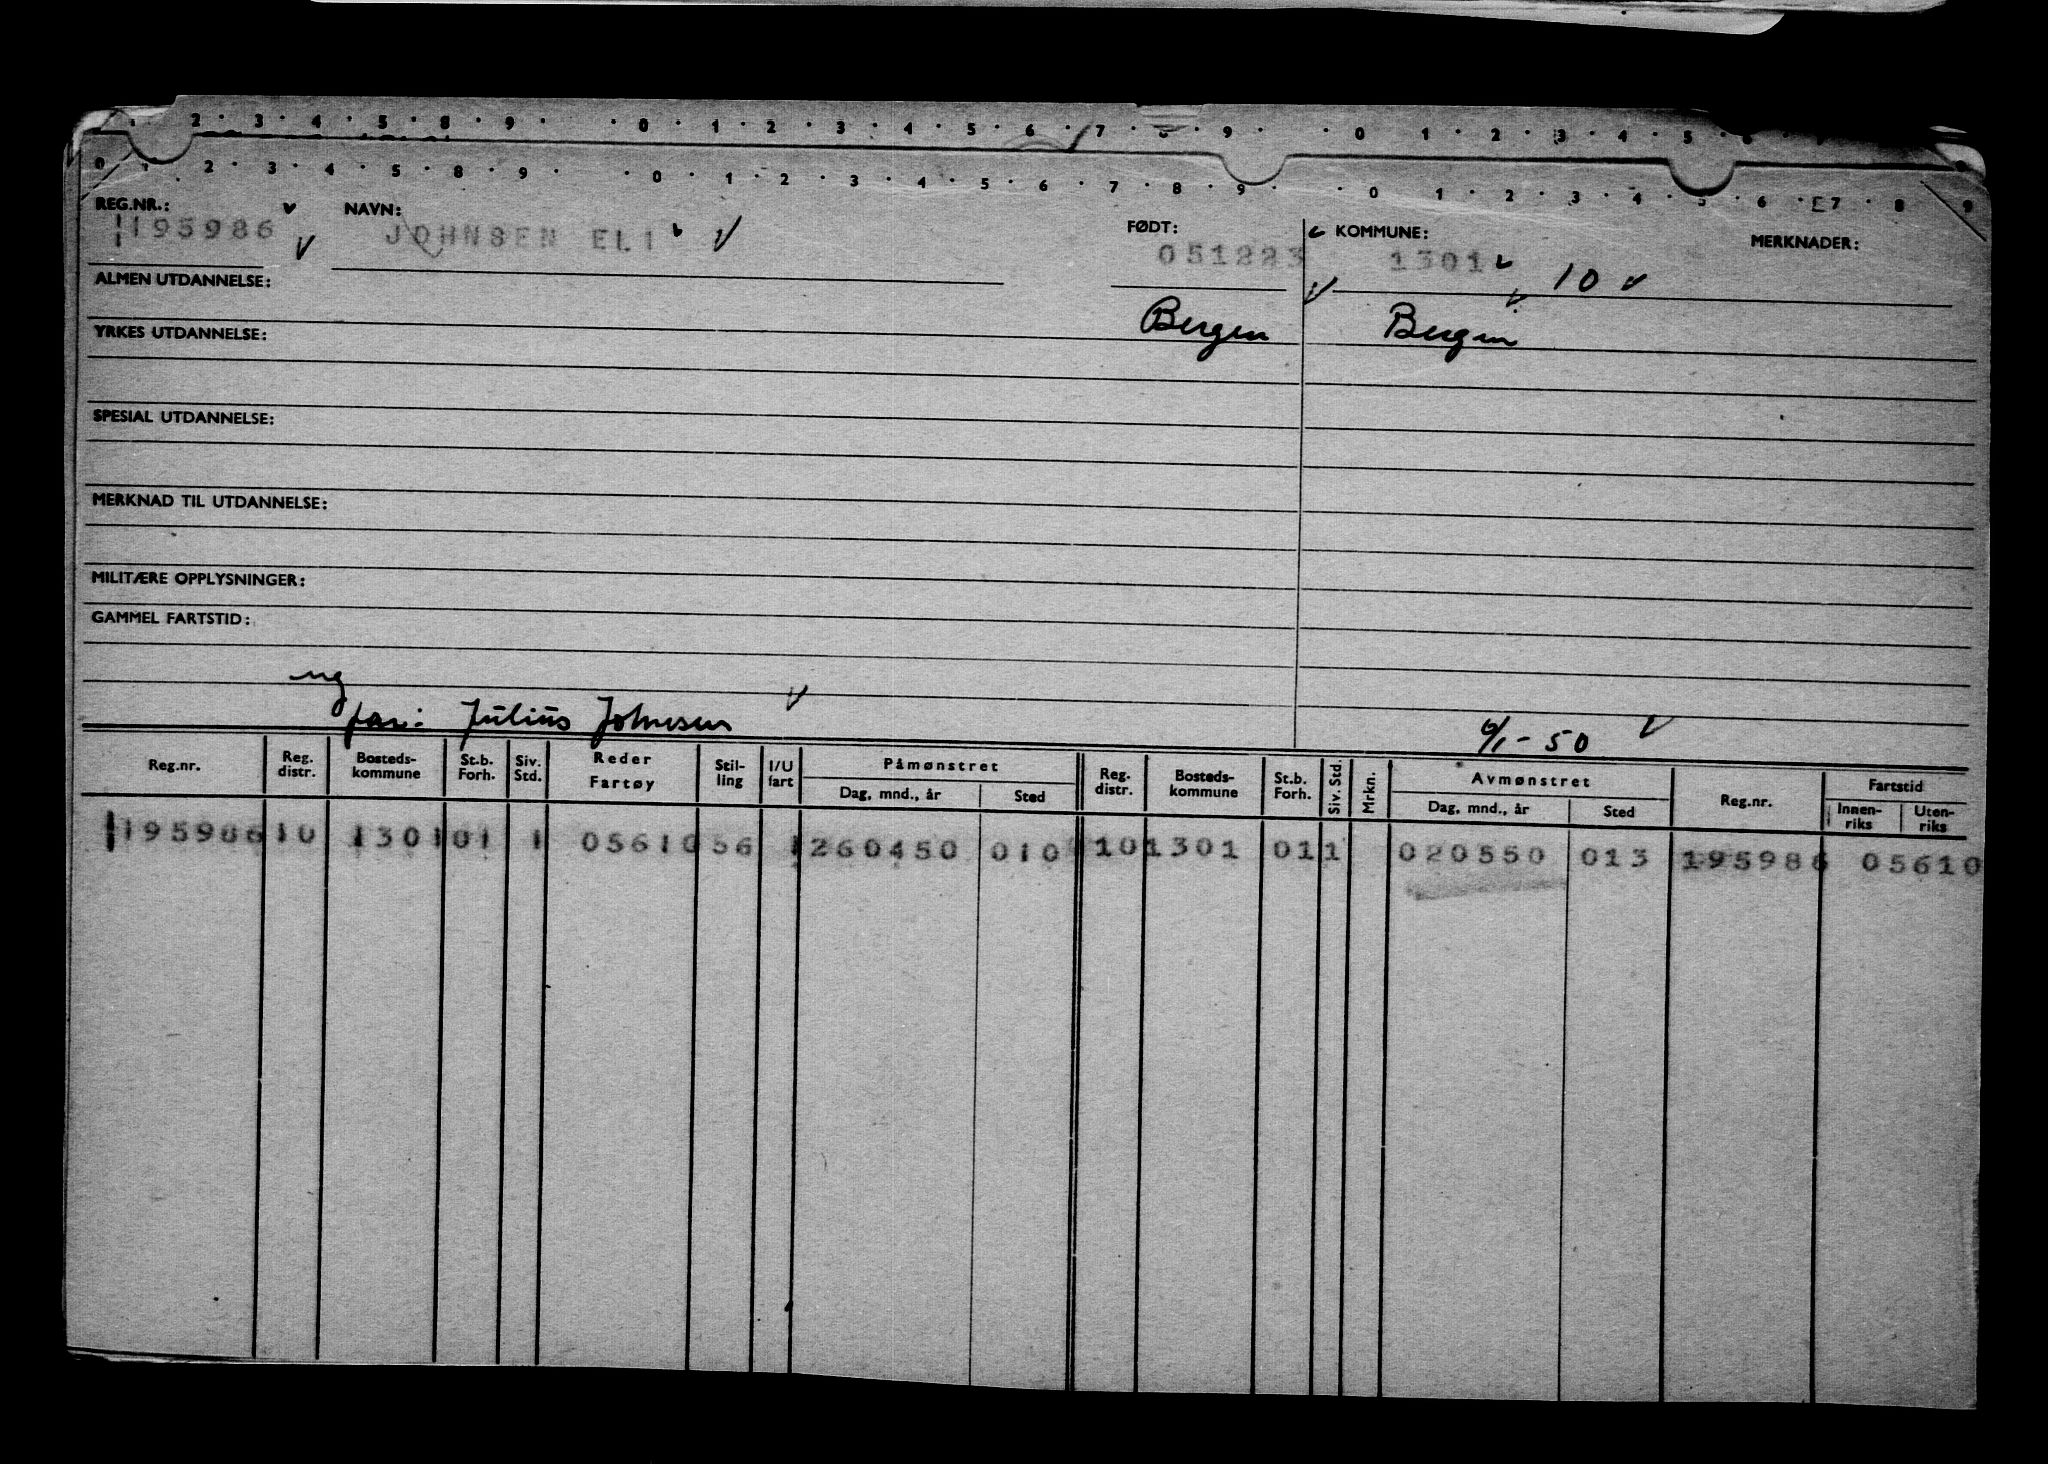 2 · 3 · 4 · 5 · 8 · 9 · · 0 · 1 · 2 · 3 · 4 · 5 · 6 · 7 · 8 · 9 · · 0 · 1 · 2 · 3 · 4 · 5 · 6 ·
0 1 · 2 · 3 · 4 · 5 · 8 · 9 · · 0 · 1 · 2 · 3 · 4 · 5 · 6 · 7 · 8 · 9 · · 0 · 1 · 2 · 3 · 4 · 5 · 6 · E7 · 8 · 9
REG.NR.: NAVN: FØDT: KOMMUNE: MERKNADER:
195986 JOHNSEN ELI 051223 1301 10
ALMEN UTDANNELSE:
Bergen Bergen
YRKES UTDANNELSE:
SPESIAL UTDANNELSE:
MERKNAD TIL UTDANNELSE:
MILITÆRE OPPLYSNINGER:
GAMMEL FARTSTID:
ug
far: Julius Johnsen 6/1-50
Reg.nr. Reg. distr. Bosteds-kommune St.b. Forh. Siv. Std. Reder Fartøy Stil-ling I/U fart Påmønstret Dag, mnd., år Sted Reg. distr. Bosteds-kommune St.b. Forh. Siv. Std. Mrkn. Avmønstret Dag, mnd., år Sted Reg.nr. Fartstid Innen-riks Uten-riks
195986 10 1301 01 1 05610 56 1 260450 010 10 1301 01 1 020550 013 195986 05610